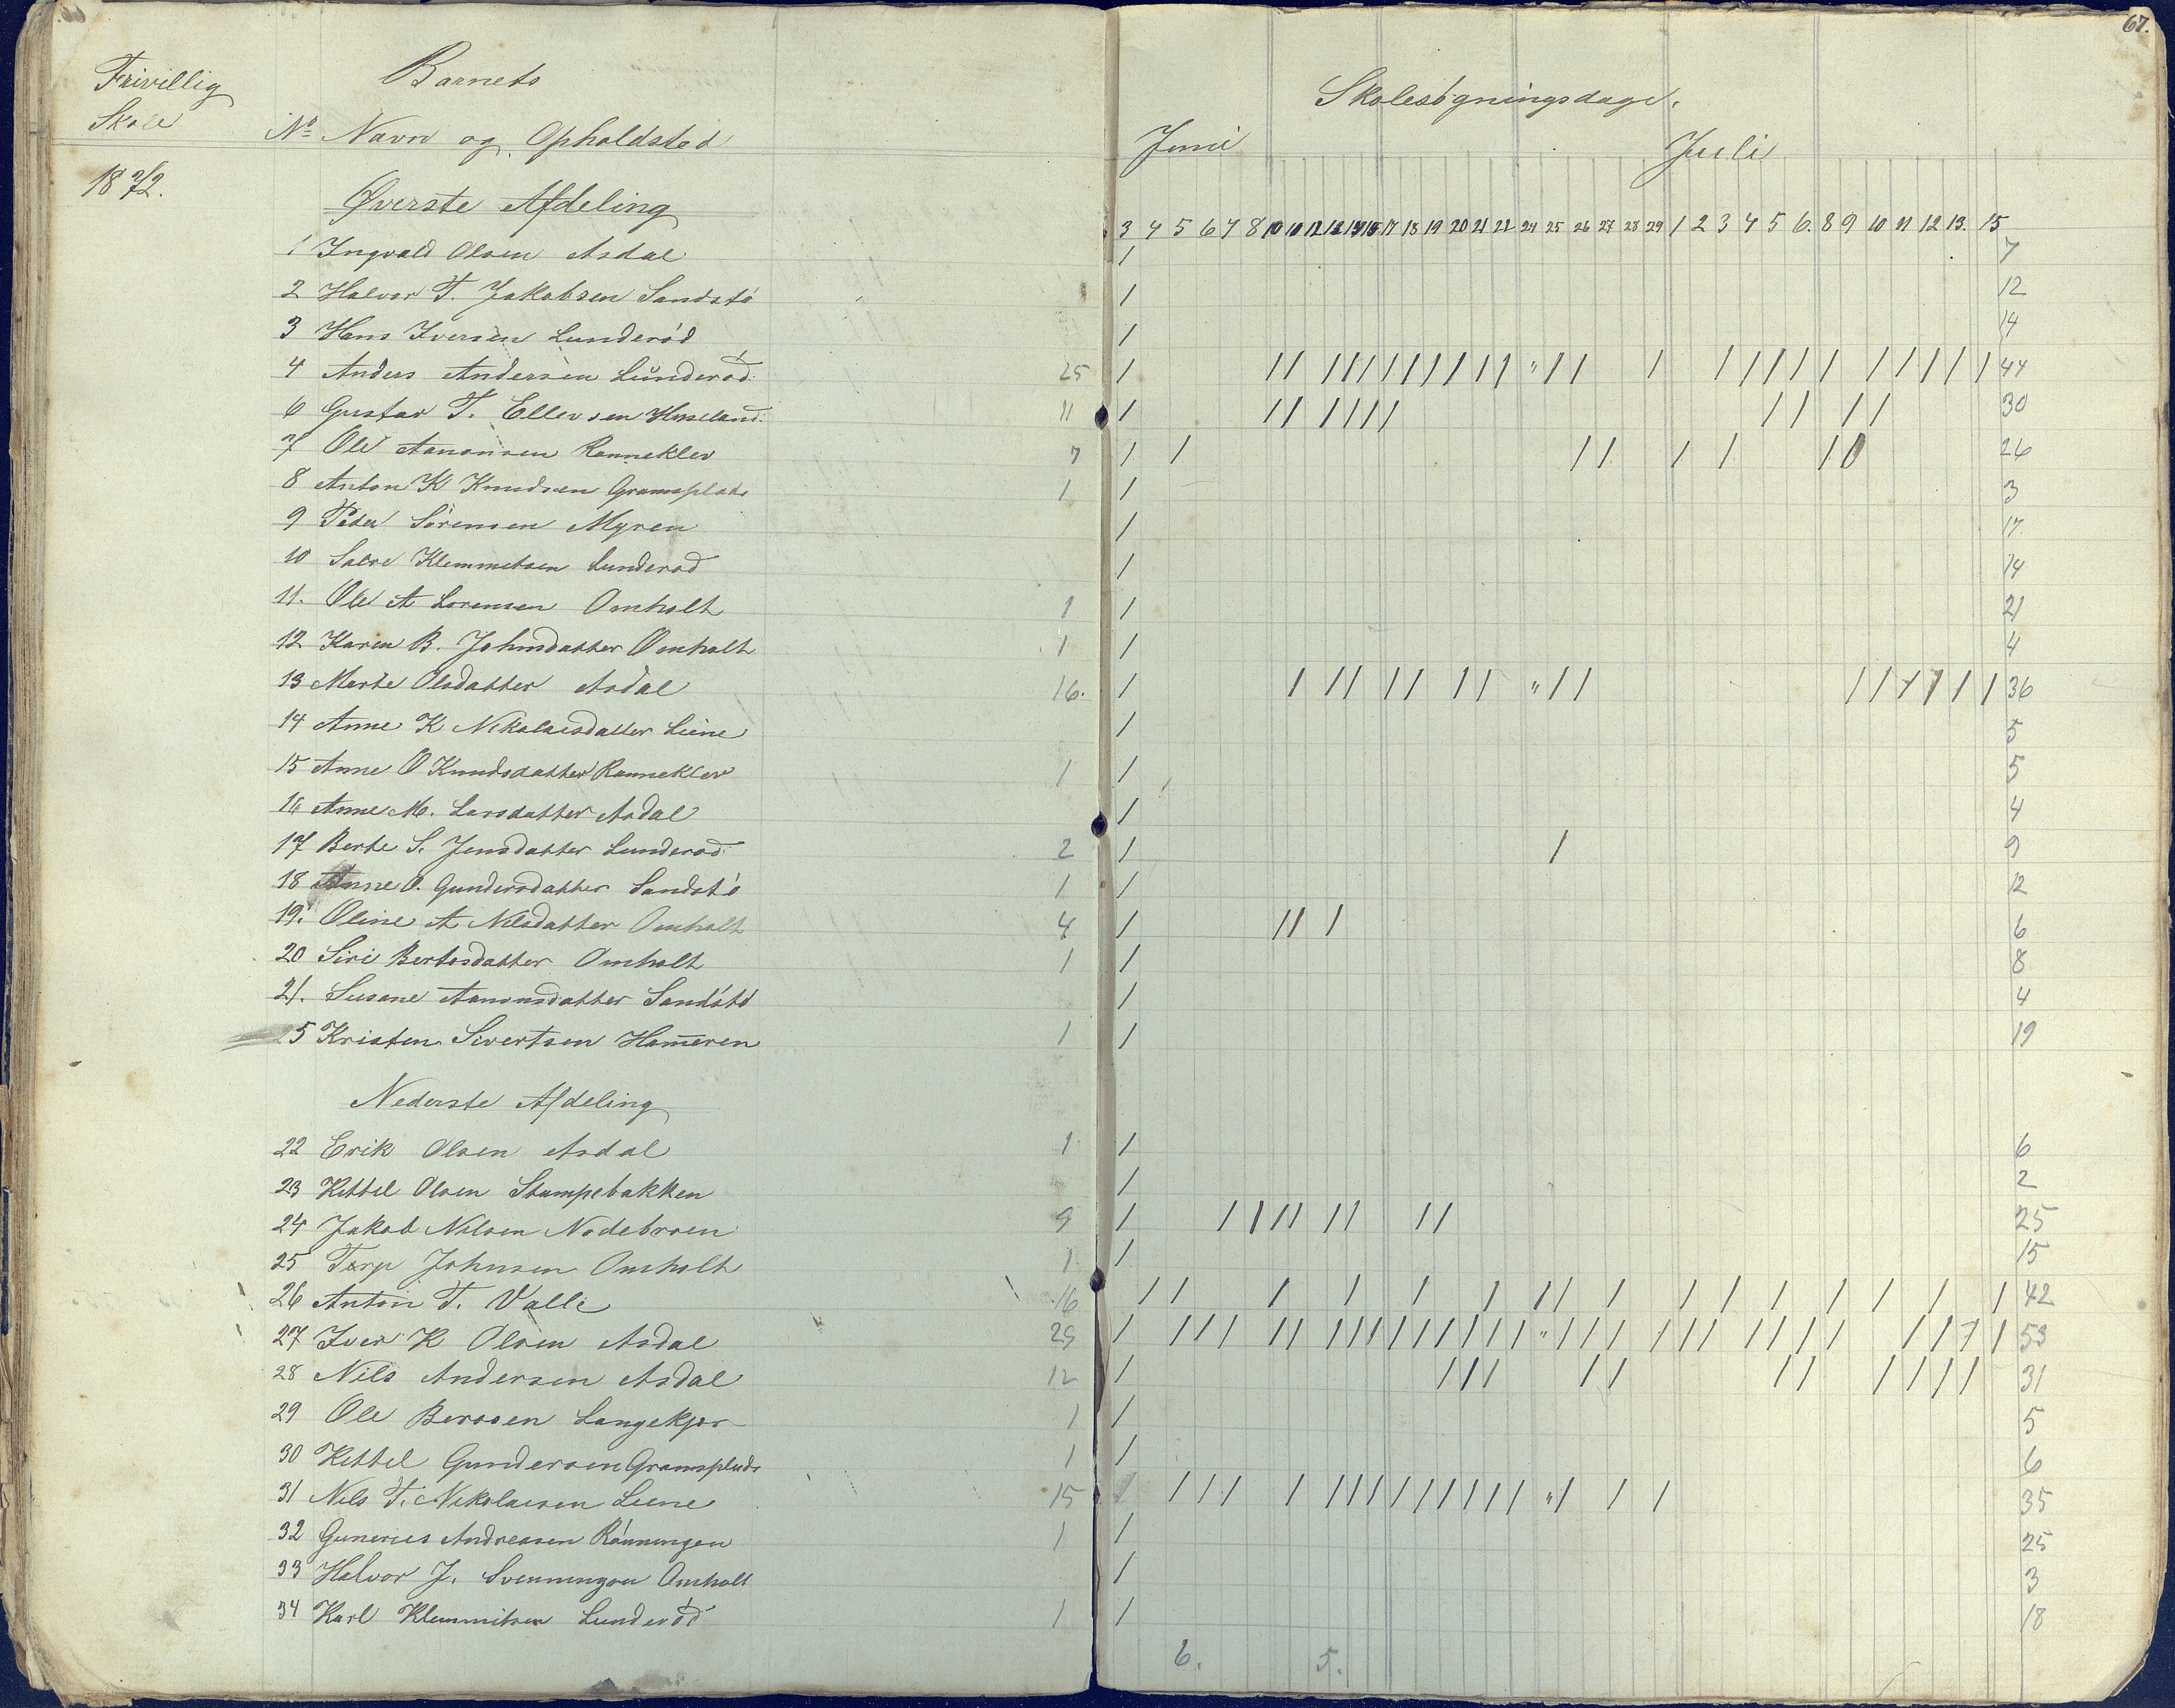 67.
Frivillig
Skole
1872.
Barnets
No Navn og Opholdsted
Skolesøgningsdage.
Juni Juli
Øverste Afdeling
3 4 5 6 7 8 10 11 12 13 14 15 17 18 19 20 21 22 24 25 26 27 28 29 1 2 3 4 5 6. 8 9 10 11 12 13. 15
1 Ingvald Olsen Asdal / 7
2 Halvor T. Jakobsen Sandstø / 12
3 Hans Iversen Lunderød / 14
4 Anders Andersen Lunderød 25 / // /////////// " // / ///// ///// / 44
6 Gustav T. Ellevsen Huseland 11 / // //// // // 30
7 Ole Aanonsen Ranneklev 7 / / // / / // 26
8 Anton K Knudsen Gramsplads 1 / 3
9 Peder Sörensen Myren / 17
10 Salve Klemmetsen Lunderød / 14
11. Ole A Lorensen Omholt 1 / 21
12 Karen B. Johnsdatter Omholt 1 / 4
13 Marte Olsdatter Asdal 16. / / // // // " // ////// / 36
14 Anne K Nikolaisdatter Liene / 5
15 Anne O Knudsdatter Ranneklev 1 / 5
16 Anne M. Larsdatter Asdal / 4
17 Berte S. Jensdatter Lunderød 2 / / 9
18 Anne O. Gundersdatter Sandstø 1 / 12
19. Oline A Nilsdatter Omholt 4 / // / 6
20 Siri Bertosdatter Omholt 1 / 8
21. Susane Aanonsdatter Sandstø / 4
5 Kristen Sivertsen Ham̅eren 1 / 19
Nederste Afdeling
22 Erik Olsen Asdal 1 / 6
23 Kittil Olsen Stampebakken / 2
24 Jakob Nilsen Nodebroen 9 / //// // // 25
25 Terje Johnsen Omholt 1 / 15
26 Anton T. Valle 16 // / / / / // / / / / / / / / 42
27 Iver K Olsen Asdal 29 / /// // ///////// " /// /// //// //// 53
28 Nils Andersen Asdal 12 / /// // // //// 31
29 Ole Berosen Langekjær 1 / 5
30 Kittil Gundersen Gramsplads 1 / 6
31 Nils T. Nikolaisen Liene 15 / /// / ///////// " / / / 35
32 Gunerius Andreasen Rønningen 1 / 25
33 Halvor J. Svenningsen Omholt / 3
34 Karl Klemmitsen Lunderød 1 / 18
6. 5.